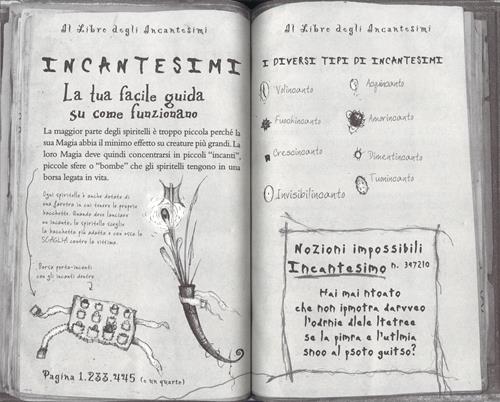 Il Libro degli Incantesimi
INCANTESIMI
La tua facile guida
su come funzionano
La maggior parte degli spiritelli è troppo piccola perché la
sua Magia abbia il minimo effetto su creature più grandi. La
loro Magia deve quindi concentrarsi in piccoli "incanti",
piccole sfere o "bombe" che gli spiritelli tengono in una
borsa legata in vita.
Ogni spiritello è anche dotato di
una faretra in cui tenere le proprie
bacchette. Quando deve lanciare
un incanto, lo spiritello sceglie
la bacchetta più adatta e con essa lo
SCAGLIA contro la vittima.
Borsa porta-incanti
con gli incanti dentro
Pagina 1.233.445 (e un quarto)
Il Libro degli Incantesimi
I DIVERSI TIPI DI INCANTESIMI
Volincanto
Acquincanto
Fuochincanto
Amorincanto
Crescincanto
Dimentincanto
Tuonincanto
Invisibilincanto
Nozioni impossibili
Incantesimo n. 347210
Hai mai ntoato
che non ipmotra darvveo
l'odrnie dlele ltetree
se la pimra e l'utlmia
snoo al psoto guitso?